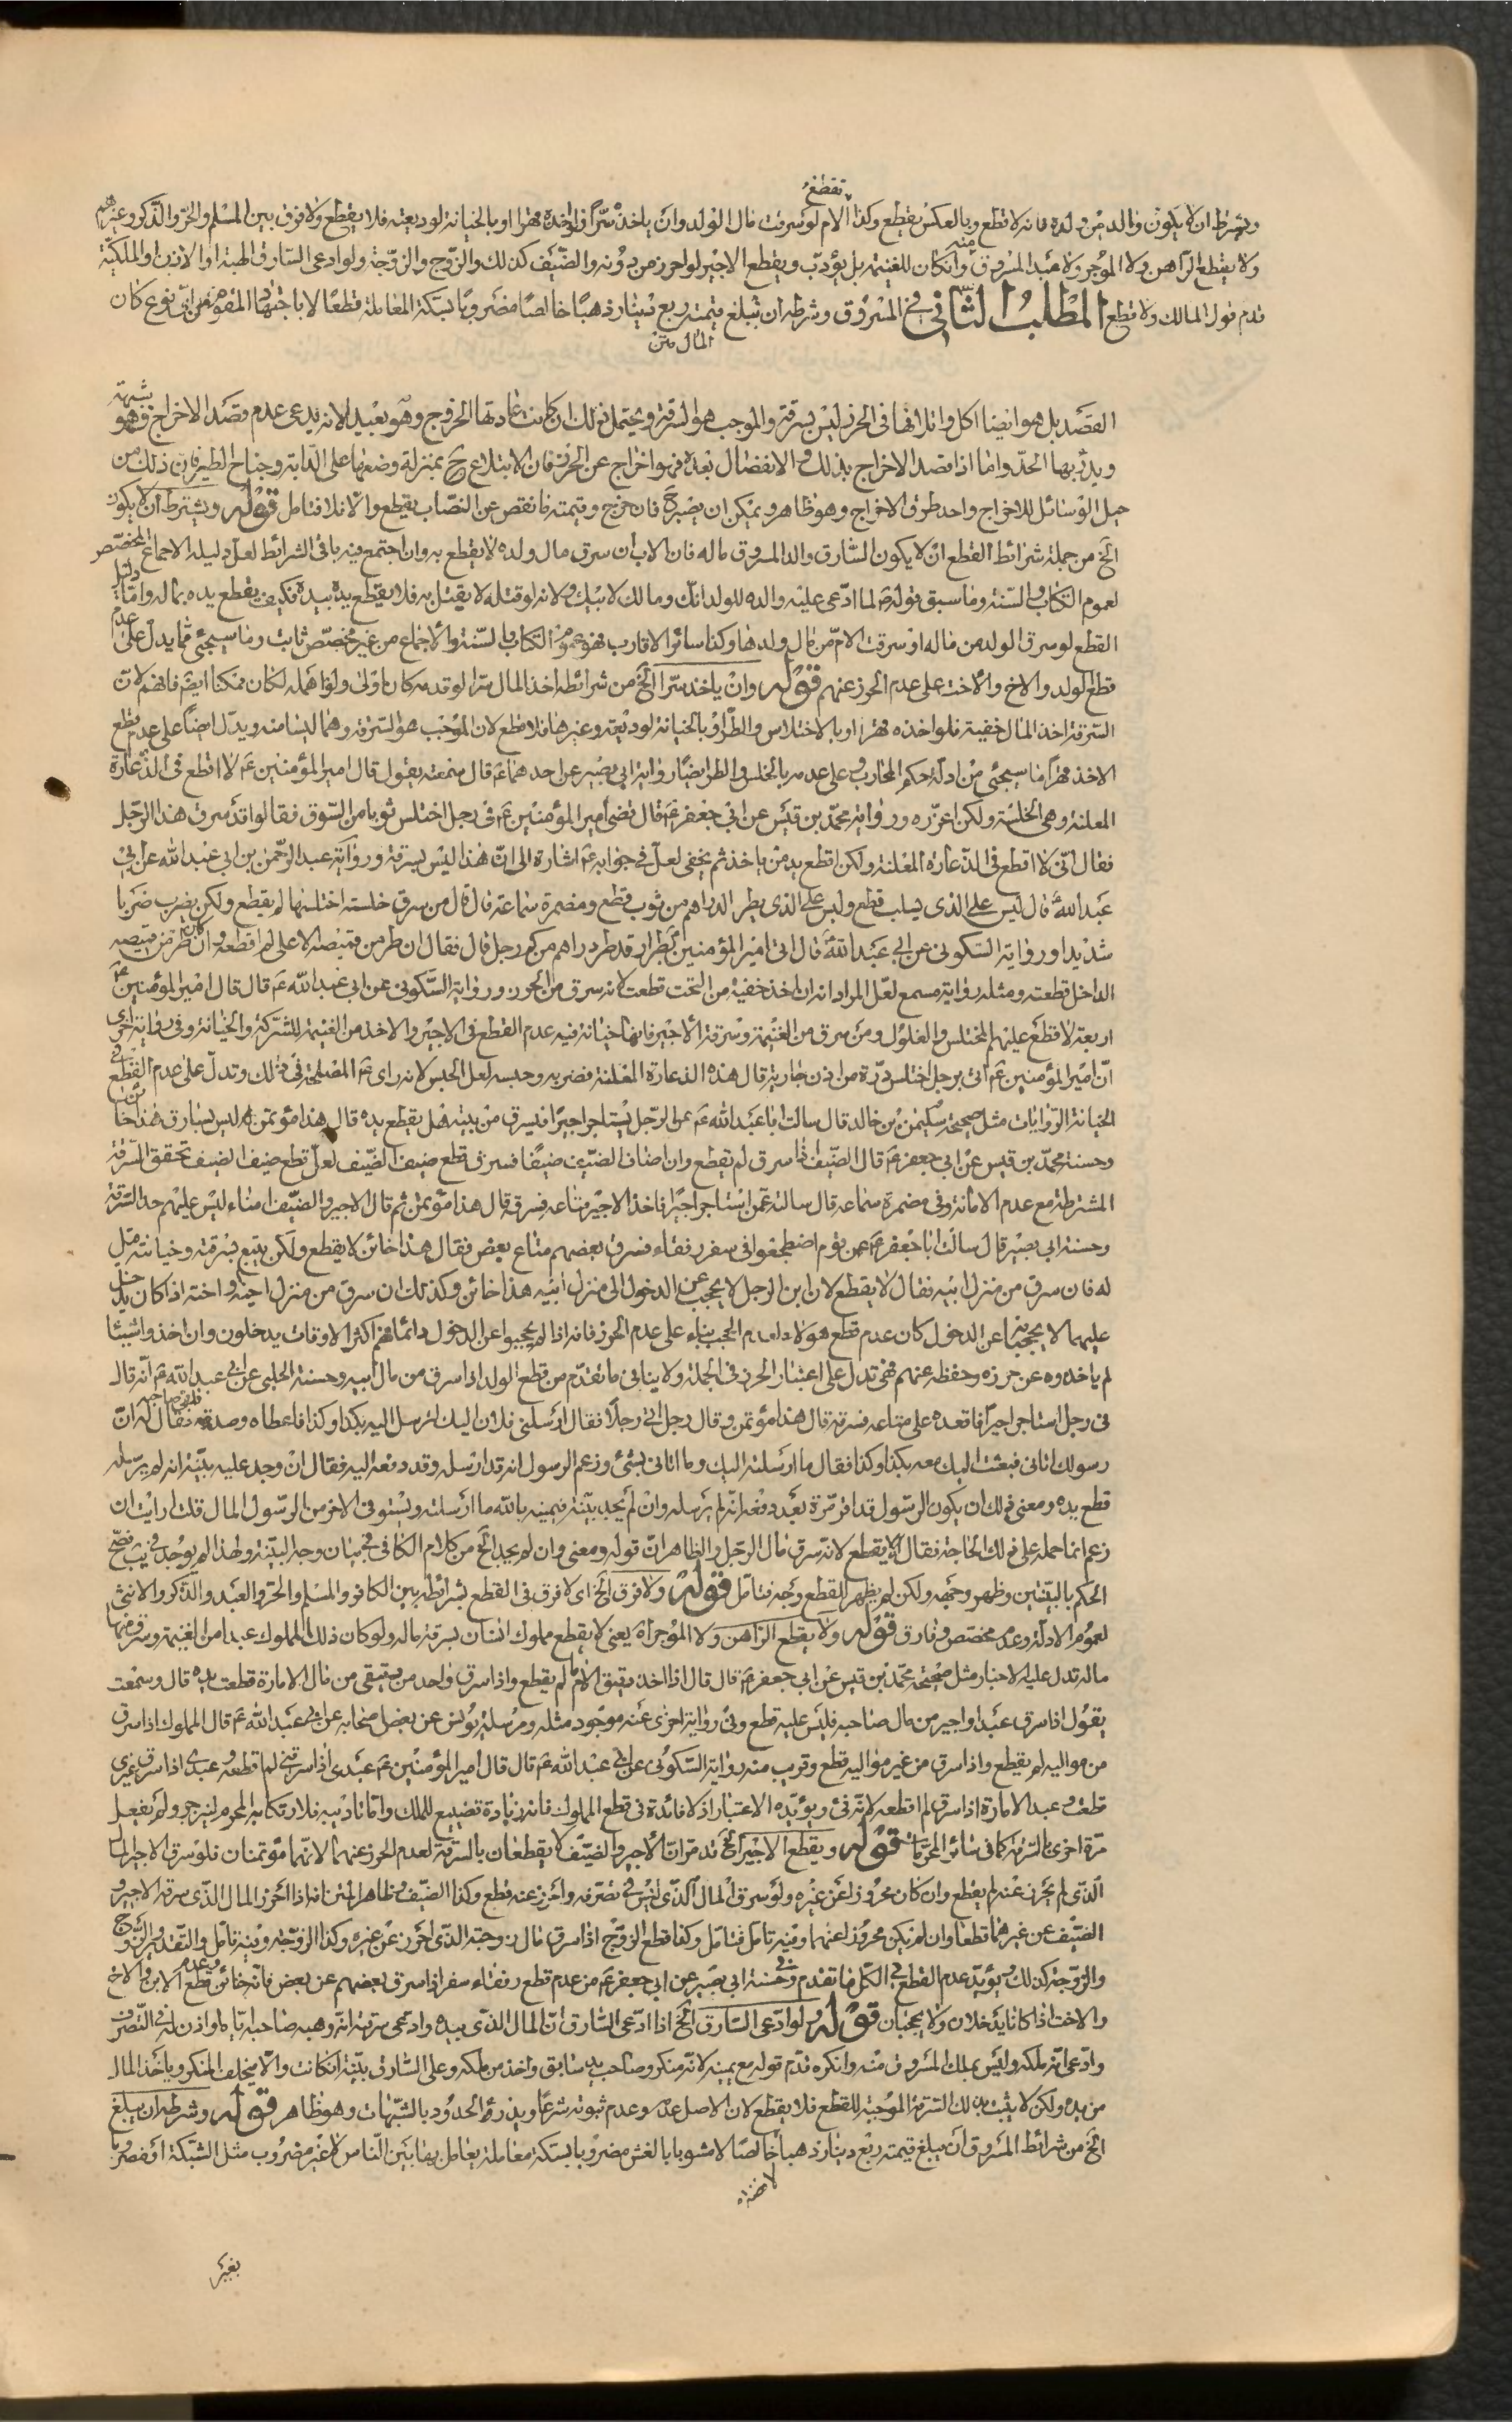 تقطع
ويشترط ان لا يكون والد من ولده فانه لا قطع وبالعكس يقطع وكذا الام لو سرقت مال الولد وان ياخذ سرّا فلو اخذه قهرا او بالخيانة لوديعته فلا يقطع ولا فرق بين المسلم والحرّ والذّكر وغيرهم
ولا يقطع الراهن ولا الموجر ولا عبد المسروق منه وان كان للغنيمة بل يؤدّب ويقطع الاجير لو احرز من دونه والضّيف كذلك والزّوج والزّوجة ولو ادعى السّارق الهبة او الاذن او الملكيّة
قدم قول المالك ولا قطع المطلب الثّاني في المسروق وشرطه ان تبلغ قيمته ربع دينار ذهبا خالصا مضروبا بسكّة المعاملة قطعا لا باجتهاد المقوم من ايّ نوع كان
المال متن
القصد بل هو ايضا اكل واتلافها في الحرز ليس بسرقة والموجب هو السرقة ويحتمل ذلك ان كانت عادتها الخروج وهو بعيد لانه يدعى عدم قصد الاخراج فهو شبهة
ويدرء بها الحدّ وامّا اذا قصد الاخراج بذلك والانفصال بعده فهو اخراج عن الحرز فان الابتلاع ح بمنزلة وضعها على الدّابة وجناح الطير فان ذلك من
حيل الوسائل للاخراج واحد طرق الاخراج وهو ظاهر ويمكن ان يصبر ح فان خرج وقيمته ما نقص عن النصّاب يقطع والّا فلا فتامل قوله ويشترط ان لا يكون
الخ من جملة شرائط القطع ان لا يكون السّارق والد المسروق ماله فان الاب ان سرق مال ولده لا يقطع به وان اجتمع فيه باقي الشرائط لعلّ دليله الاجماع المخصّص
لعموم الكتاب والسّنة وما سبق قوله ص لما ادّعى عليه والده للولد انك ومالك لابيك ولانه لو قتله لا يقتل به فلا يقطع يده بيده فكيف يقطع يده بماله وامّا دليل
القطع لو سرق الولد من ماله او سرقت الامّ من مال ولدها وكذا سائر الاقارب فهو عموم الكتاب والسّنة والاجماع من غير مخصّص ثابت وما سيجئ ممّا يدلّ على عدم
قطع الولد والاخ والاخت على عدم الحرز عنهم قوله وان ياخذ سرّا الخ من شرائطه اخذ المال سرّا لو قدمه كان اولى ولو اهمله لكان ممكنا ايضا فافهم لانّ
السّرقة اخذ المال خفية فلو اخذه قهرا او بالاختلاس والطّر او بالخيانة لوديعة وغيرها فلا قطع لان الموجب هو السّرقة وهما ليسا منه ويدلّ ايضا على عدم قطع
الاخذ قهرا ما سيجئ من ادلّة حكم المحارب وعلى عدمه بالخلس والطر ايضا رواية ابي بصير عن احدهما ع قال سمعته يقول قال امير المؤمنين ع لا اقطع في الدّغارة
المعلنة وهي الخلسة ولكن اعزّره ورواية محمّد بن قيس عن ابي جعفر ع قال قضى امير المؤمنين ع في رجل اختلس ثوبا من السّوق فقالوا قد سرق هذا الرّجل
فقال انّي لا اقطع في الدّغارة المعلنة ولكن اقطع يد من ياخذ ثم يخفى لعلّ في جوابه ع اشارة الى انّ هذا ليس بسرقة ورواية عبد الرّحمن بن ابي عبد الله عن ابي
عبد الله قال ليس على الذي يسلب قطع وليس على الذي يطر الدراهم من ثوب قطع ومضمرة سماعة قال قال من سرق خلسة اختلسها لم يقطع ولكن يضرب ضربا
شديدا ورواية السّكوني عن ابي عبد الله قال اتى امير المؤمنين بطرار قد طر دراهم من كم رجل قال فقال ان طر من قميصه الاعلى لم اقطعه وان طر من قميصه
الداخل قطعته ومثله رواية مسمع لعلّ المراد انه ان اخذ خفية من التحت قطعت لانه سرق من الحرز ورواية السّكوني عن ابي عبد الله ع قال قال امير المؤمنين ع
اربعة لا قطع عليهم المختلس والغلول ومن سرق من الغنيمة وسرقة الاجير فانها خيانة فيه عدم القطع في الاجير والاخذ من الغنيمة للشّركة والخيانة وفي رواية اخرى
انّ امير المؤمنين ع اتى برجل اختلس درّة من اذن جارية قال هذه الدّغارة المعلنة فضربه وحبسه لعل الحبس لانه راى ع المصلحة في ذلك وتدلّ على عدم القطع في
الخيانة الرّوايات مثل صحيحة سليمن بن خالد قال سالت ابا عبد الله ع عن الرّجل يستاجر اجيرا فيسرق من بيته هل يقطع يده قال هذا مؤتمن ليس بسارق هذا خائن
وحسنة محمّد بن قيس عن ابي جعفر ع قال الضّيف اذا سرق لم يقطع وان اضاف الضّيف ضيفا فسرق قطع ضيف الضّيف لعلّ قطع ضيف الضيف تحقق السّرقة
المشترطة مع عدم الامانة وفي مضمرة سماعة قال سالته عمّن استاجر اجيرا فاخذ الاجير متاعه فسرقه قال هذا مؤتمن ثم قال الاجير والضّيف امناء ليس عليهم حد السّرقة
وحسنة ابي بصير قال سالت ابا جعفر ع عن قوم اصطحبوا في سفر رفقاء فسرق بعضهم متاع بعض فقال هذا خائن لا يقطع ولكن يتبع بسرقته وخيانته قيل
له فان سرق من منزل ابيه فقال لا يقطع لان ابن الرجل لا يحجب عن الدخول الى منزل ابيه هذا خائن وكذلك ان سرق من منزل اخيه واخته اذا كان يدخل
عليهما لا يحجبانه عن الدخول كان عدم قطع هؤلاء لعدم الحجب بناء على عدم الحرز فانه اذا لم يحجبوا عن الدخول دائما فهم اكثر الاوقات يدخلون وان اخذوا شيئا
لم ياخذوه عن حرزه وحفظه عنهم فهي تدل على اعتبار الحرز في الجملة ولا ينافي ما تقدّم من قطع الولد اذا سرق من مال ابيه وحسنة الحلبي عن ابي عبد الله ع انّه قال
في رجل استاجر اجيرا فاقعده على متاعه فسرقه قال هذا مؤتمن وقال رجل اتى رجلا فقال ارسلني فلان اليك لترسل اليه بكذا وكذا فاعطاه وصدقه فلقي صاحبه فقال له انّ
رسولك اتاني فبعثت اليك معه بكذا وكذا فقال ما ارسلته اليك وما اتاني بشئ وزعم الرسول انه قد ارسله وقد دفعه اليه فقال ان وجد عليه بيّنة انه لم يرسله
قطع يده ومعنى ذلك ان يكون الرّسول قد اقرّ مرّة بعد دفعه انّه لم يرسله وان لم يجد بيّنة فيمينه بالله ما ارسلته ويستوفي الاخر من الرّسول المال قلت ارايت ان
زعم انما حمله على ذلك الحاجة فقال يقطع لانه سرق مال الرّجل والظاهر انّ قوله ومعنى وان لم يجد الخ من كلام الكافي في بيان وجه البيّنة ولهذا لم يوجد في يب فصحّ
الحكم باليقين وظهر وجهه ولكن لم يظهر القطع وجه فتامّل قوله ولا فرق الخ اى لا فرق في القطع بشرائطه بين الكافر والمسلم والحرّ والعبد والذّكر والانثى
لعموم الادلّة وعدم مخصّص وفارق قوله ولا يقطع الرّاهن ولا الموجر اه يعني لا يقطع مملوك انسان بسرقة ماله ولو كان ذلك المملوك عبدا من الغنيمة وسرق منها
ماله تدل عليه الاخبار مثل صحيحة محمّد بن قيس عن ابي جعفر ع قال قال اذا اخذ رقيق الامام لم يقطع واذا سرق واحد من رقيقي من مال الامارة قطعت يده قال وسمعت
يقول اذا سرق عبد او اجير من مال صاحبه فليس عليه قطع وفي رواية اخرى عنه موجود مثله ومرسلة يونس عن بعض اصحابه عن ابي عبد الله ع قال المملوك اذا سرق
من مواليه لم يقطع واذا سرق من غير مواليه قطع وقريب منه رواية السّكوني عن ابي عبد الله ع قال قال امير المؤمنين ع عبدي اذا سرقني لم اقطعه وعبدي اذا سرق غيري
قطعته وعبد الامارة اذا سرق لم اقطعه لانّه فئ ويؤيّده الاعتبار اذ لا فائدة في قطع المملوك فانه زيادة تضييع للملك وامّا تاديبه فلارتكابه المحرم لينزجر ولم يفعل
مرّة اخرى بالسّرقة كما في سائر المحرّمات قوله ويقطع الاجير الخ قد مرّ انّ الاجير والضيّف لا يقطعان بالسّرقة لعدم الحرز عنهما لانّهما مؤتمنان فلو سرق الاجير المال
الّذي لم يحرز عنه لم يقطع وان كان محروزا عن غيره ولو سرق المال الّذي ليس في تصرّفه واحرز عنه قطع وكذا الضّيف وظاهر المتن انه اذا احرز المال الذّي سرقه الاجير و
الضّيف عن غيرهما قطعا وان لم يكن محروزا عنهما وفيه تامّل فتامّل وكذا قطع الزّوج اذا سرق مال زوجته الذي احرز عن غيره وكذا الزّوجة وفيه تامّل والتّقدير والزّوج
والزّوجة كذلك ويؤيّد عدم القطع في الكلّ ما تقدم في حسنة ابي بصير عن ابي جعفر ع من عدم قطع رفقاء سفر اذا سرق بعضهم عن بعض فانّه خائن وعدم قطع الابن والاخ
والاخت اذا كانا يدخلان ولا يحجبان قوله ولو ادّعى السّارق الخ اذا ادّعى السّارق انّ المال الذّي بيده وادّعى سرقته انّه وهبه صاحبه ايّاه او اذن له في التّصرف
وادّعى انّه ملكه وليس بملك المسروق منه وانكره قدّم قوله مع يمينه لانّه منكر وصاحب يد سابق واخذ من ملكه وعلى السّارق بيّنة ان كانت والّا يحلف المنكر وياخذ المال
من يده ولكن لا يثبت بذلك السّرقة الموجبة للقطع فلا يقطع لان الاصل عدمه وعدم ثبوته شرعا ويدرؤ الحدود بالشّبهات وهو ظاهر قوله وشرطه ان يبلغ
الخ من شرائط المسروق ان يبلغ قيمته ربع دينار ذهبا خالصا لا مشوبا بالغش مضروبا بسكّة معاملة يعامل بها بين النّاس لا غير مضروب مثل السّبيكة او مضروبا
بغير